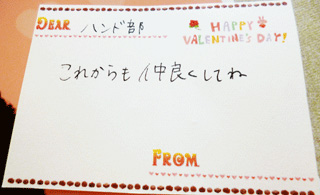 DEAR ハンド部
HAPPY
VALENTINE'S DAY!
これからも仲良くしてね
FROM